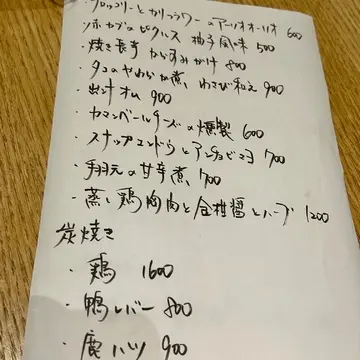 ・ブロッコリーとカリフラワーのアーリオオーリオ 600
・赤カブのピクルス 柚子風味 500
・焼き長芋 からすみかけ 800
・タコのやわらか煮 わさび和え 900
・出汁オム 900
・カマンベールチーズの燻製 600
・スナップエンドウとアンチョビ 700
・手羽元の甘辛煮 700
・蒸し鶏胸肉と金柑醤とハーブ 1200
炭焼き
・鶏 1600
・鴨レバー 800
・鹿ハツ 900